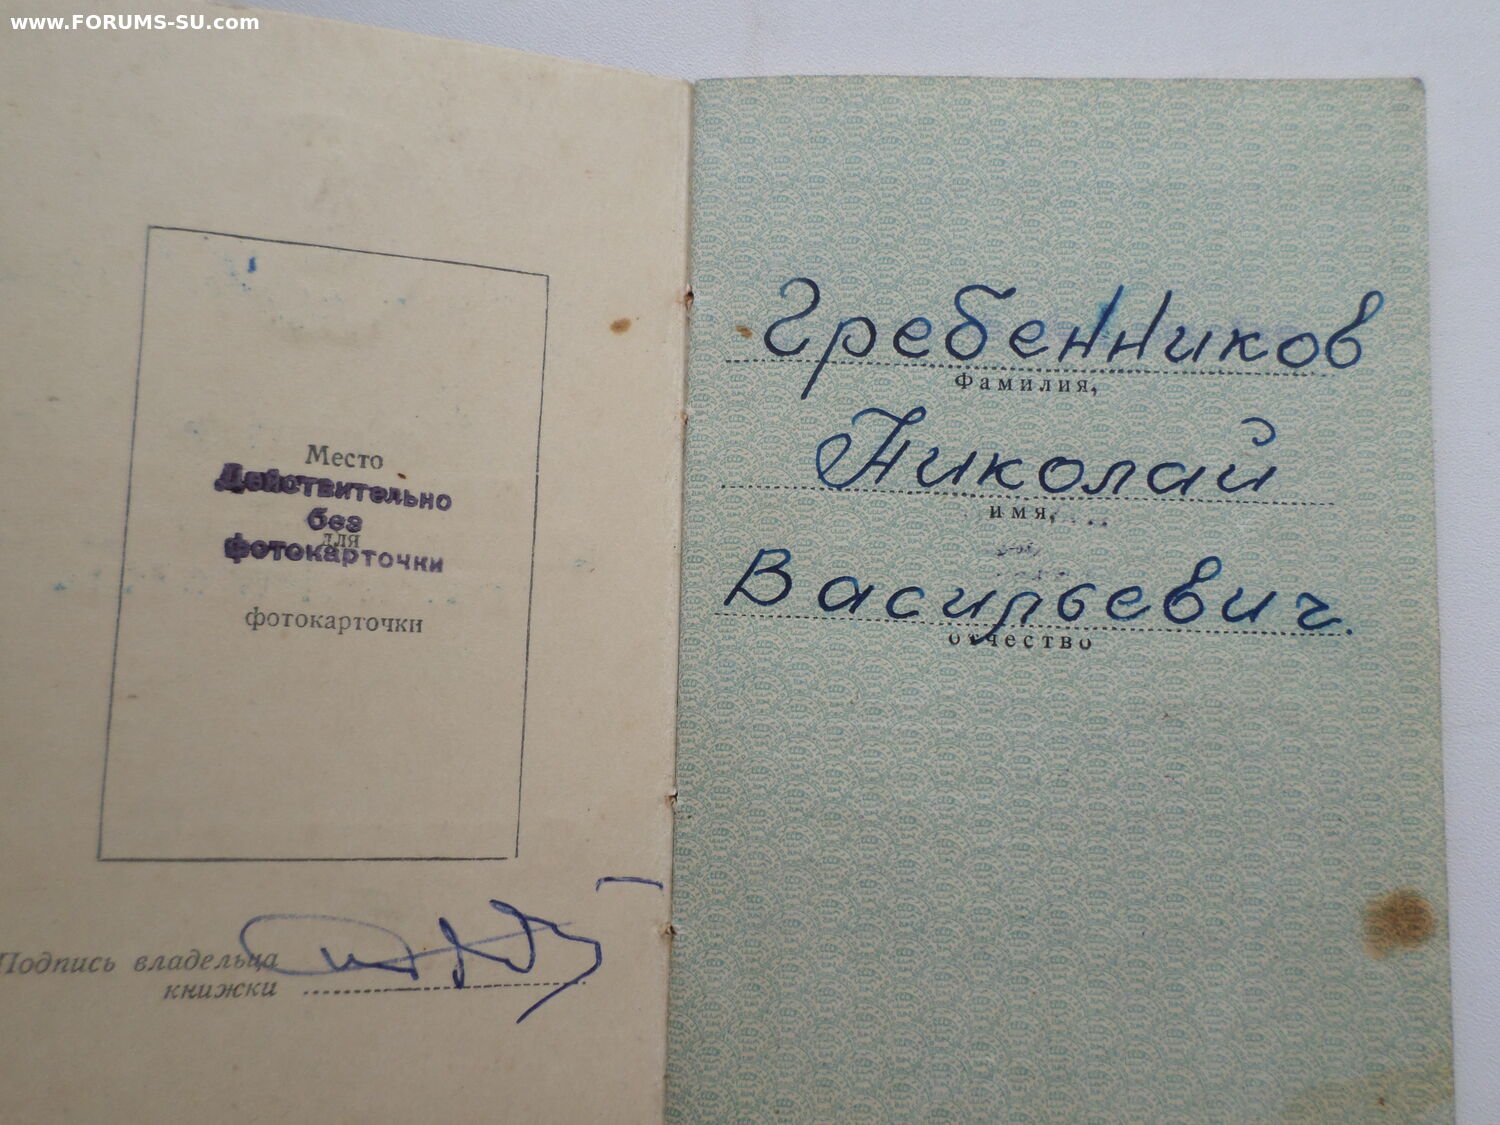 www.FORUMS-SU.com
Место
Действительно
без
для
фотокарточки
фотокарточки
Подпись владельца
книжки
Гребенников
Фамилия,
Николай
имя,
Васильевич.
отчество